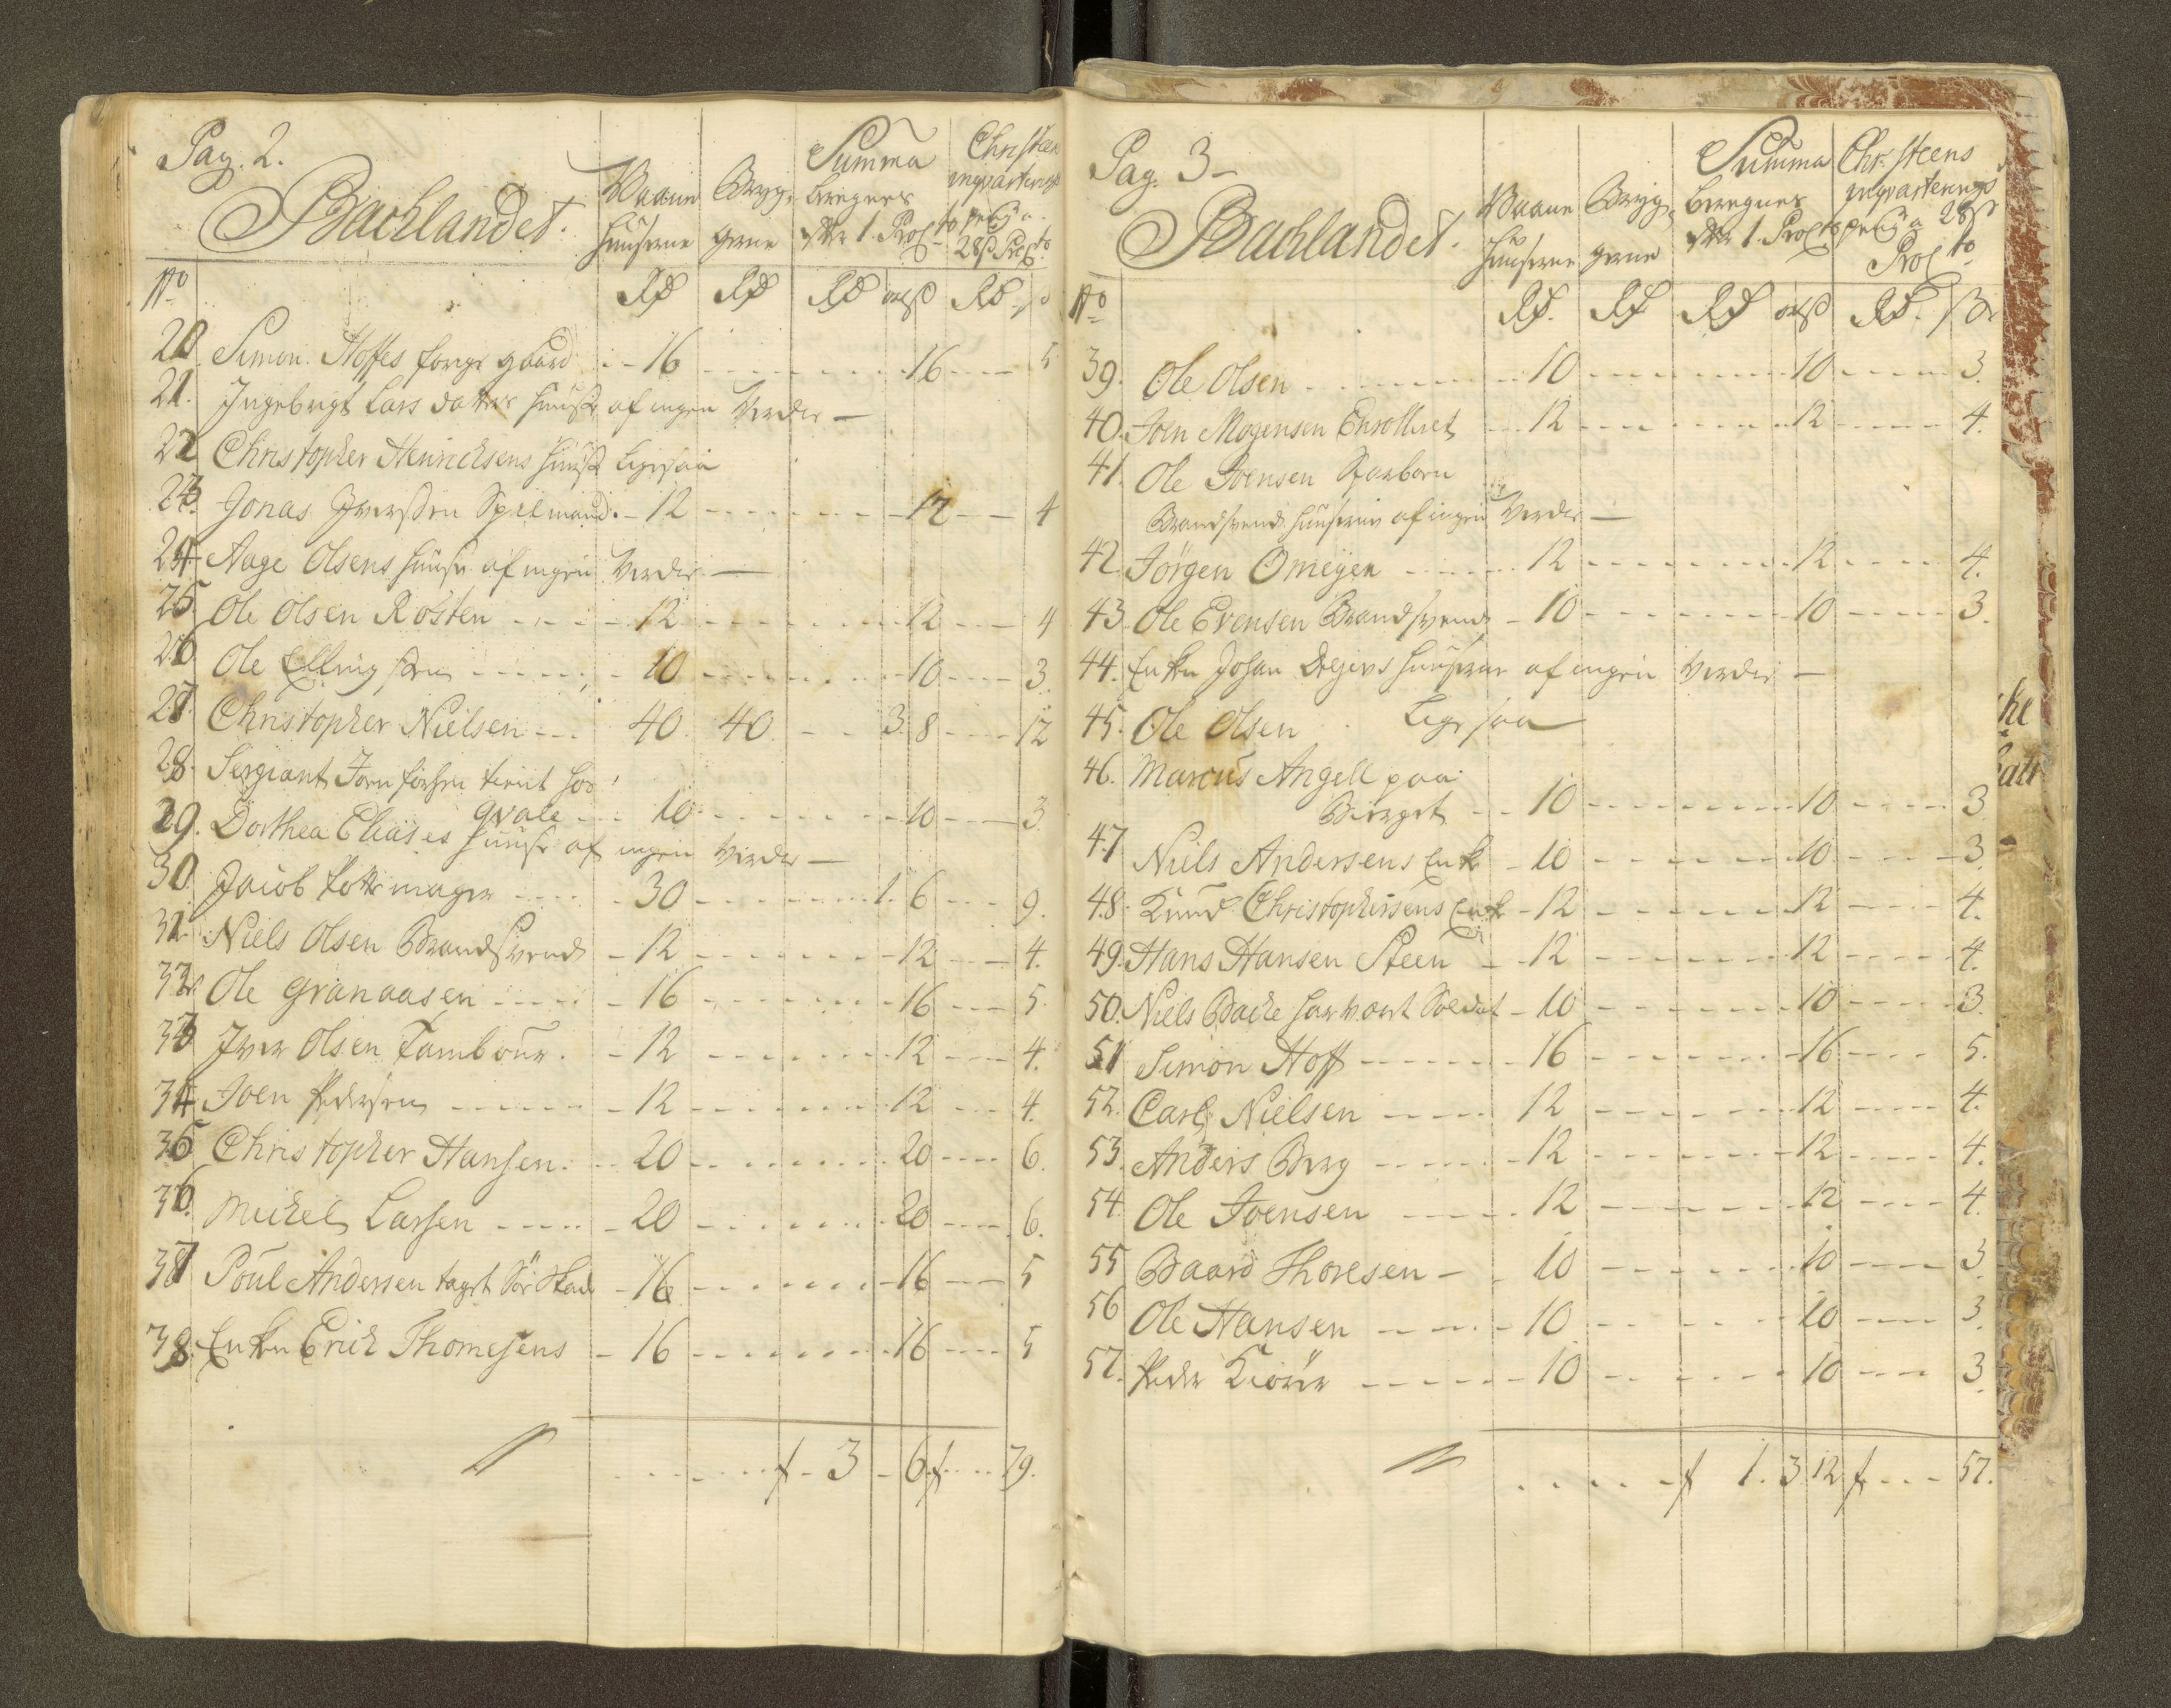 Pag. 2.
Bachlandet.
Waane huuserne
Bryggerne
Summa beregnes
28 ß
No
Rd Rd Rd ort ß Rd ß
20 Simon Hoffes forige gaard 16 16 5
21. Ingebrigt Lars datters huuse af ingen Verdie
22 Christopher Henrichsens huuse ligesaa
23. Jonas Iverssen Spilemand 12 12 4
24. Aage Olsens huuse af ingen Verdie
25. Ole Olsen Rosten 12 12 4
26 Ole Ellingsen 10 10 3.
27. Christopher Nielsen 40. 40 3. 8 12
28. Sergiant Joen
qvale 10 10 3.
29. Dorthea Eliæ huuse af ingen Verdie
30. Jacob Pottemager 30 1. 6 9.
31 Niels Olsen Brandsvend 12 12 4.
32 Ole Granaasen 16 16 5.
33 Iver Olsen Tambour. 12 12 4.
34 Joen Pedersen 12 12 4.
35 Christopher Hansen. 20 20 6.
36. Michel Larsen 20 20 6.
37 Poul Andersen 16 16 5
38. Enken Erich Thomesens 16 16 5
3 6 79.
Pag. 3
Bachlandet.
Waane huuserne
Bryggerne
Summa beregnes
Chr. Steens
28 ß
No
Rd. Rd Rd ort ß Rd. ß
39. Ole Olsen 10 10 3.
40. Joen Mogensen Enrolleret 12 12 4.
41. Ole Joensen
Brandsvend huuserne af ingen Verdie
42. Jörgen Omeyer 12 12 4.
43. Ole Evensen Brandsvend 10 10 3.
44. Enken Johan huuserne af ingen Verdie
45. Ole Olsen Ligesaa
46. Marcus Angell paa
Bierget 10 10 3
47 Niels Andersens Enke 10 10 3.
48. Knud Christophersens Enke 12 12 4.
49. Hans Hansen Steen 12 12 4.
50. Niels Backe har vært Soldat 10 10 3.
51 Simon Hoff 16 16 5.
52. Carl Nielsen 12 12 4.
53. Anders Berg 12 12 4.
54. Ole Joensen 12 12 4.
55 Baard Thoresen 10 10 3.
56 Ole Hansen 10 10 3.
57. Peder 10 10 3.
1. 3 12 57.